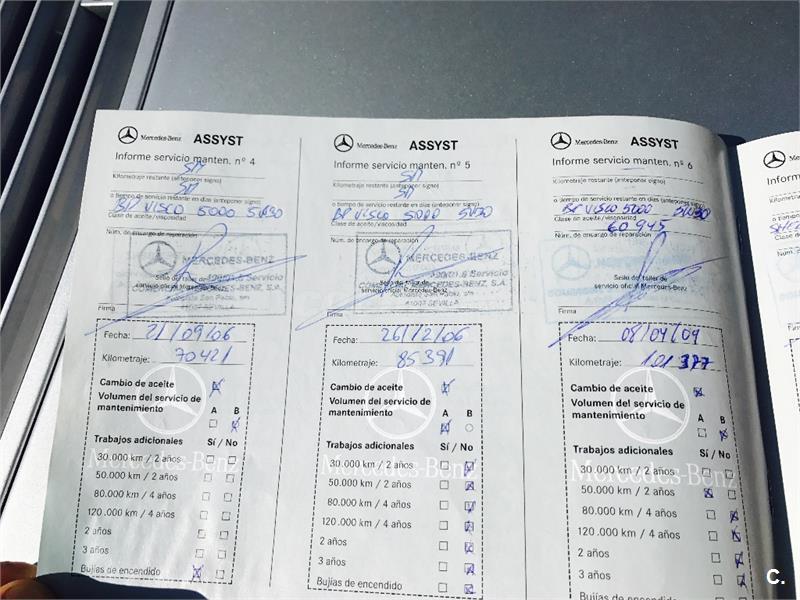 Mercedes-Benz ASSYST
Informe servicio manten. nº 4
Kilometraje restante (anteponer signo)
o tiempo de servicio restante en días (anteponer signo)
BP VISCO 5000 5W30
Clase de aceite/viscosidad
Núm. de encargo de reparación
MERCEDES-BENZ
Sello del taller de
servicio oficial Mercedes-Benz
Firma
Fecha: 21/09/06
Kilometraje: 70421
Cambio de aceite
Volumen del servicio de
mantenimiento A B
Trabajos adicionales Sí / No
30.000 km / 2 años
50.000 km / 2 años
80.000 km / 4 años
120.000 km / 4 años
2 años
3 años
Bujías de encendido
Mercedes-Benz
Mercedes-Benz ASSYST
Informe servicio manten. nº 5
Kilometraje restante (anteponer signo)
o tiempo de servicio restante en días (anteponer signo)
BP VISCO 5000 5W30
Clase de aceite/viscosidad
Núm. de encargo de reparación
MERCEDES-BENZ
MERCEDES-BENZ, S.A.
SEVILLA
servicio oficial Mercedes-Benz
Firma
Fecha: 26/12/06
Kilometraje: 85391
Cambio de aceite
Volumen del servicio de
mantenimiento A B
Trabajos adicionales Sí / No
30.000 km / 2 años
50.000 km / 2 años
80.000 km / 4 años
120.000 km / 4 años
2 años
3 años
Bujías de encendido
Mercedes-Benz
Mercedes-Benz ASSYST
Informe servicio manten. nº 6
Kilometraje restante (anteponer signo)
o tiempo de servicio restante en días (anteponer signo)
BP VISCO 5000 5W30
Clase de aceite/viscosidad
60945
Núm. de encargo de reparación
Sello del taller de
servicio oficial Mercedes-Benz
Firma
Fecha: 08/04/09
Kilometraje: 101377
Cambio de aceite
Volumen del servicio de
mantenimiento A B
Trabajos adicionales Sí / No
30.000 km / 2 años
50.000 km / 2 años
80.000 km / 4 años
120.000 km / 4 años
2 años
3 años
Bujías de encendido
Mercedes-Benz
Inform
Kilometra
o tiempo
Clase de
Núm. de
Firma
C.